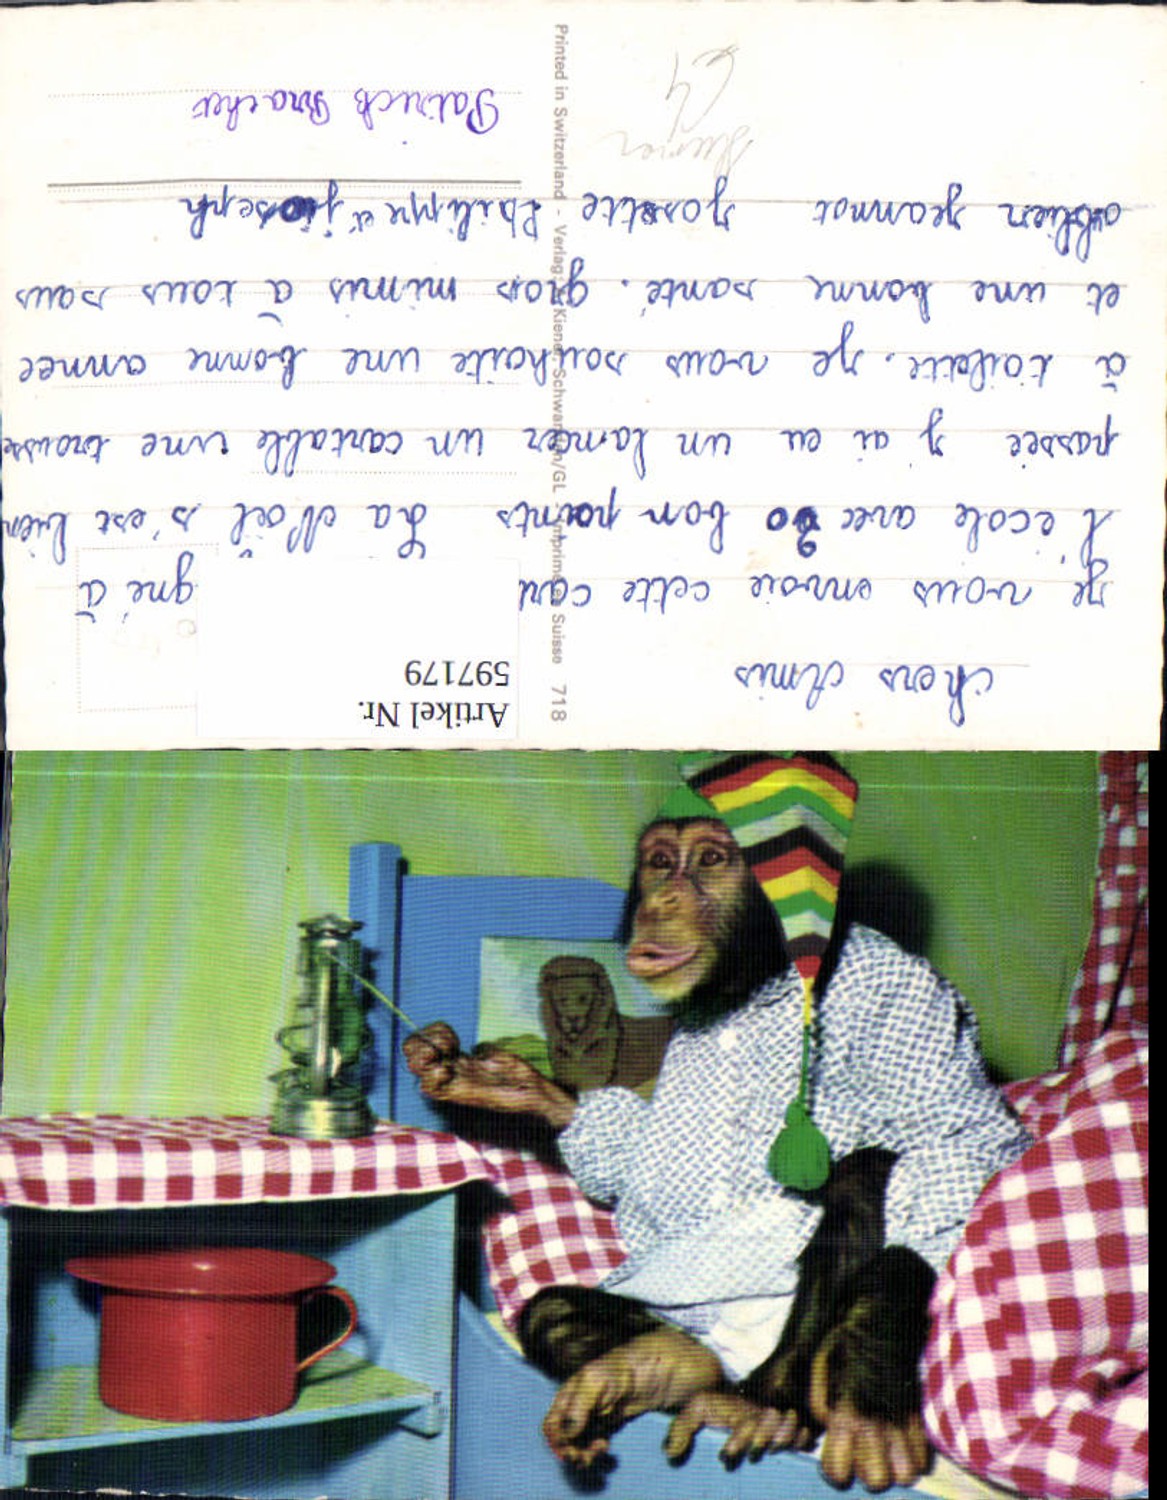 Artikel Nr.
597179
chers Amis
je vous envoie cette cart gné à
l'école avec 20 bon points La Noël s'est bien
passée j'ai eu un lancer un cartable une trousse
à toilette. je vous souhaite une bonne annee
et une bonne santé. gros mimis à tous sans
oublier jeannot josette Philippe et joseph
Patrick
Printed in Switzerland - Verlag Kiener, Schwanden/GL - Imprimé en Suisse 718